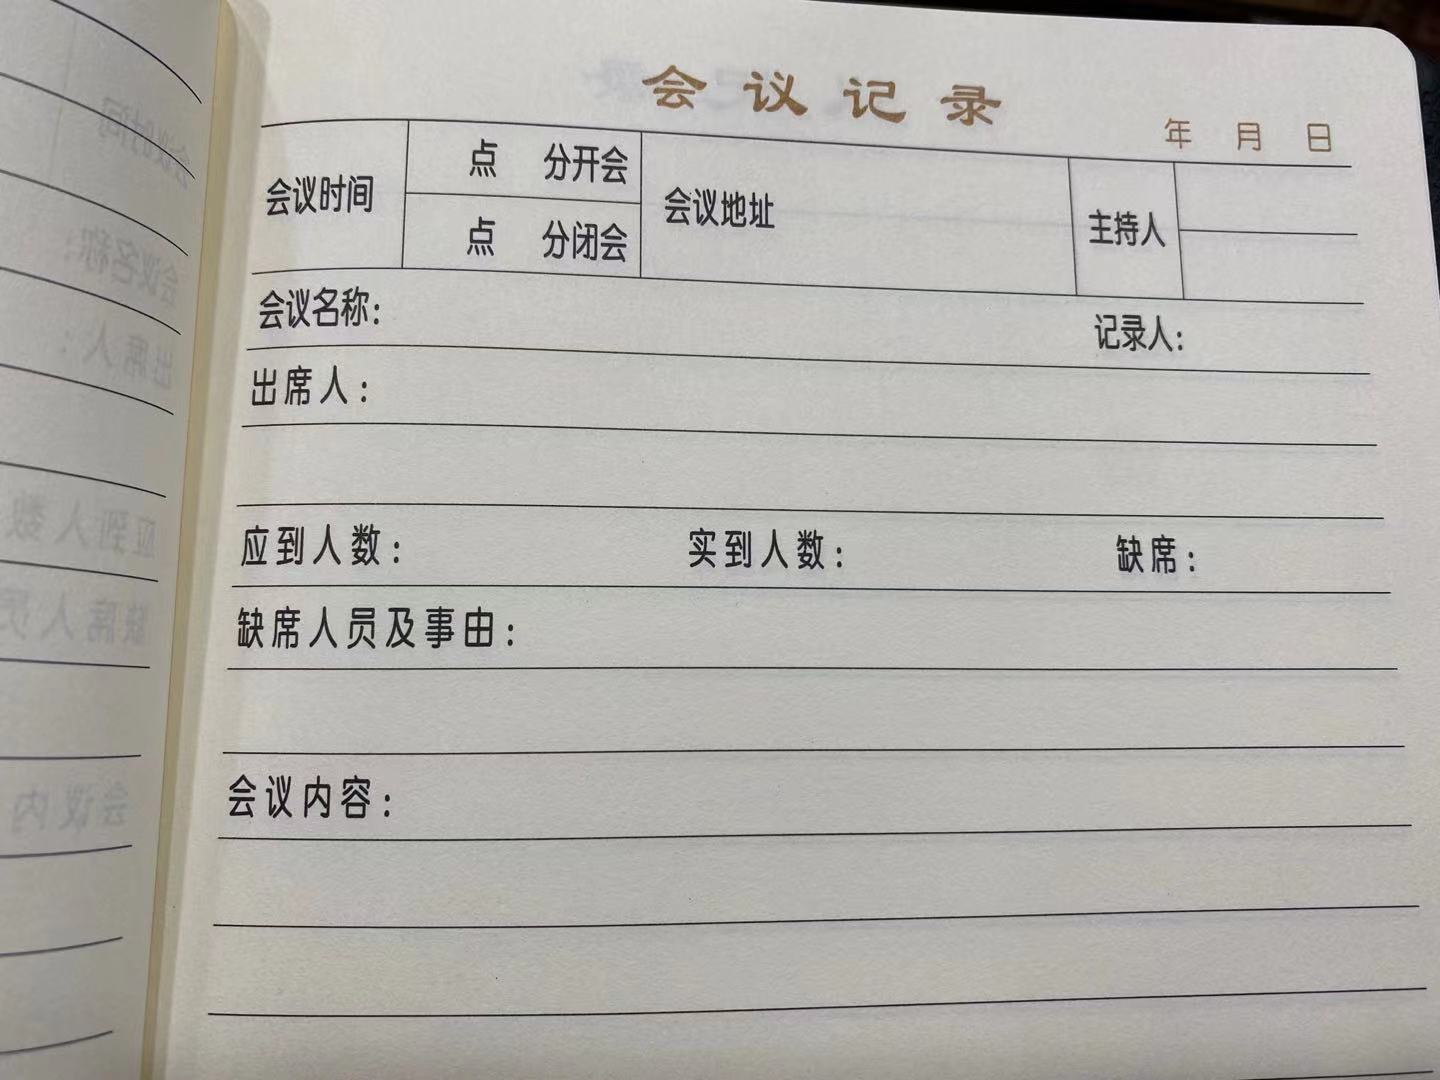 会议记录
年 月 日
会议时间 点 分开会 会议地址 主持人
点 分闭会
会议名称： 记录人：
出席人：
应到人数： 实到人数： 缺席：
缺席人员及事由：
会议内容：